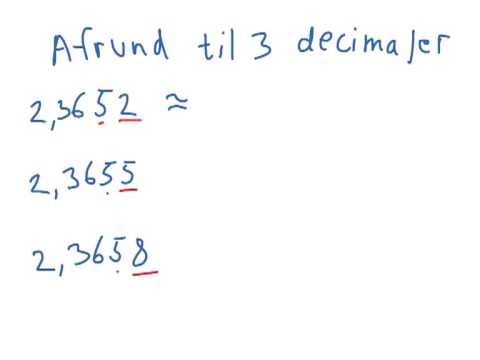 Afrund til 3 decimaler
2,3652 ≈
2,3655
2,3658